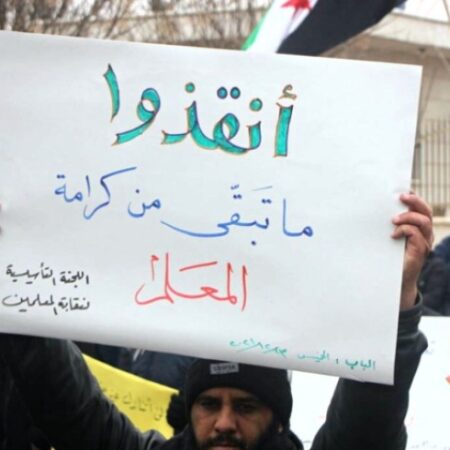 أنقذوا
ما تبقّى من كرامة
المعلم
اللجنة التأسيسية
لنقابة المعلمين
الباب، الخميس